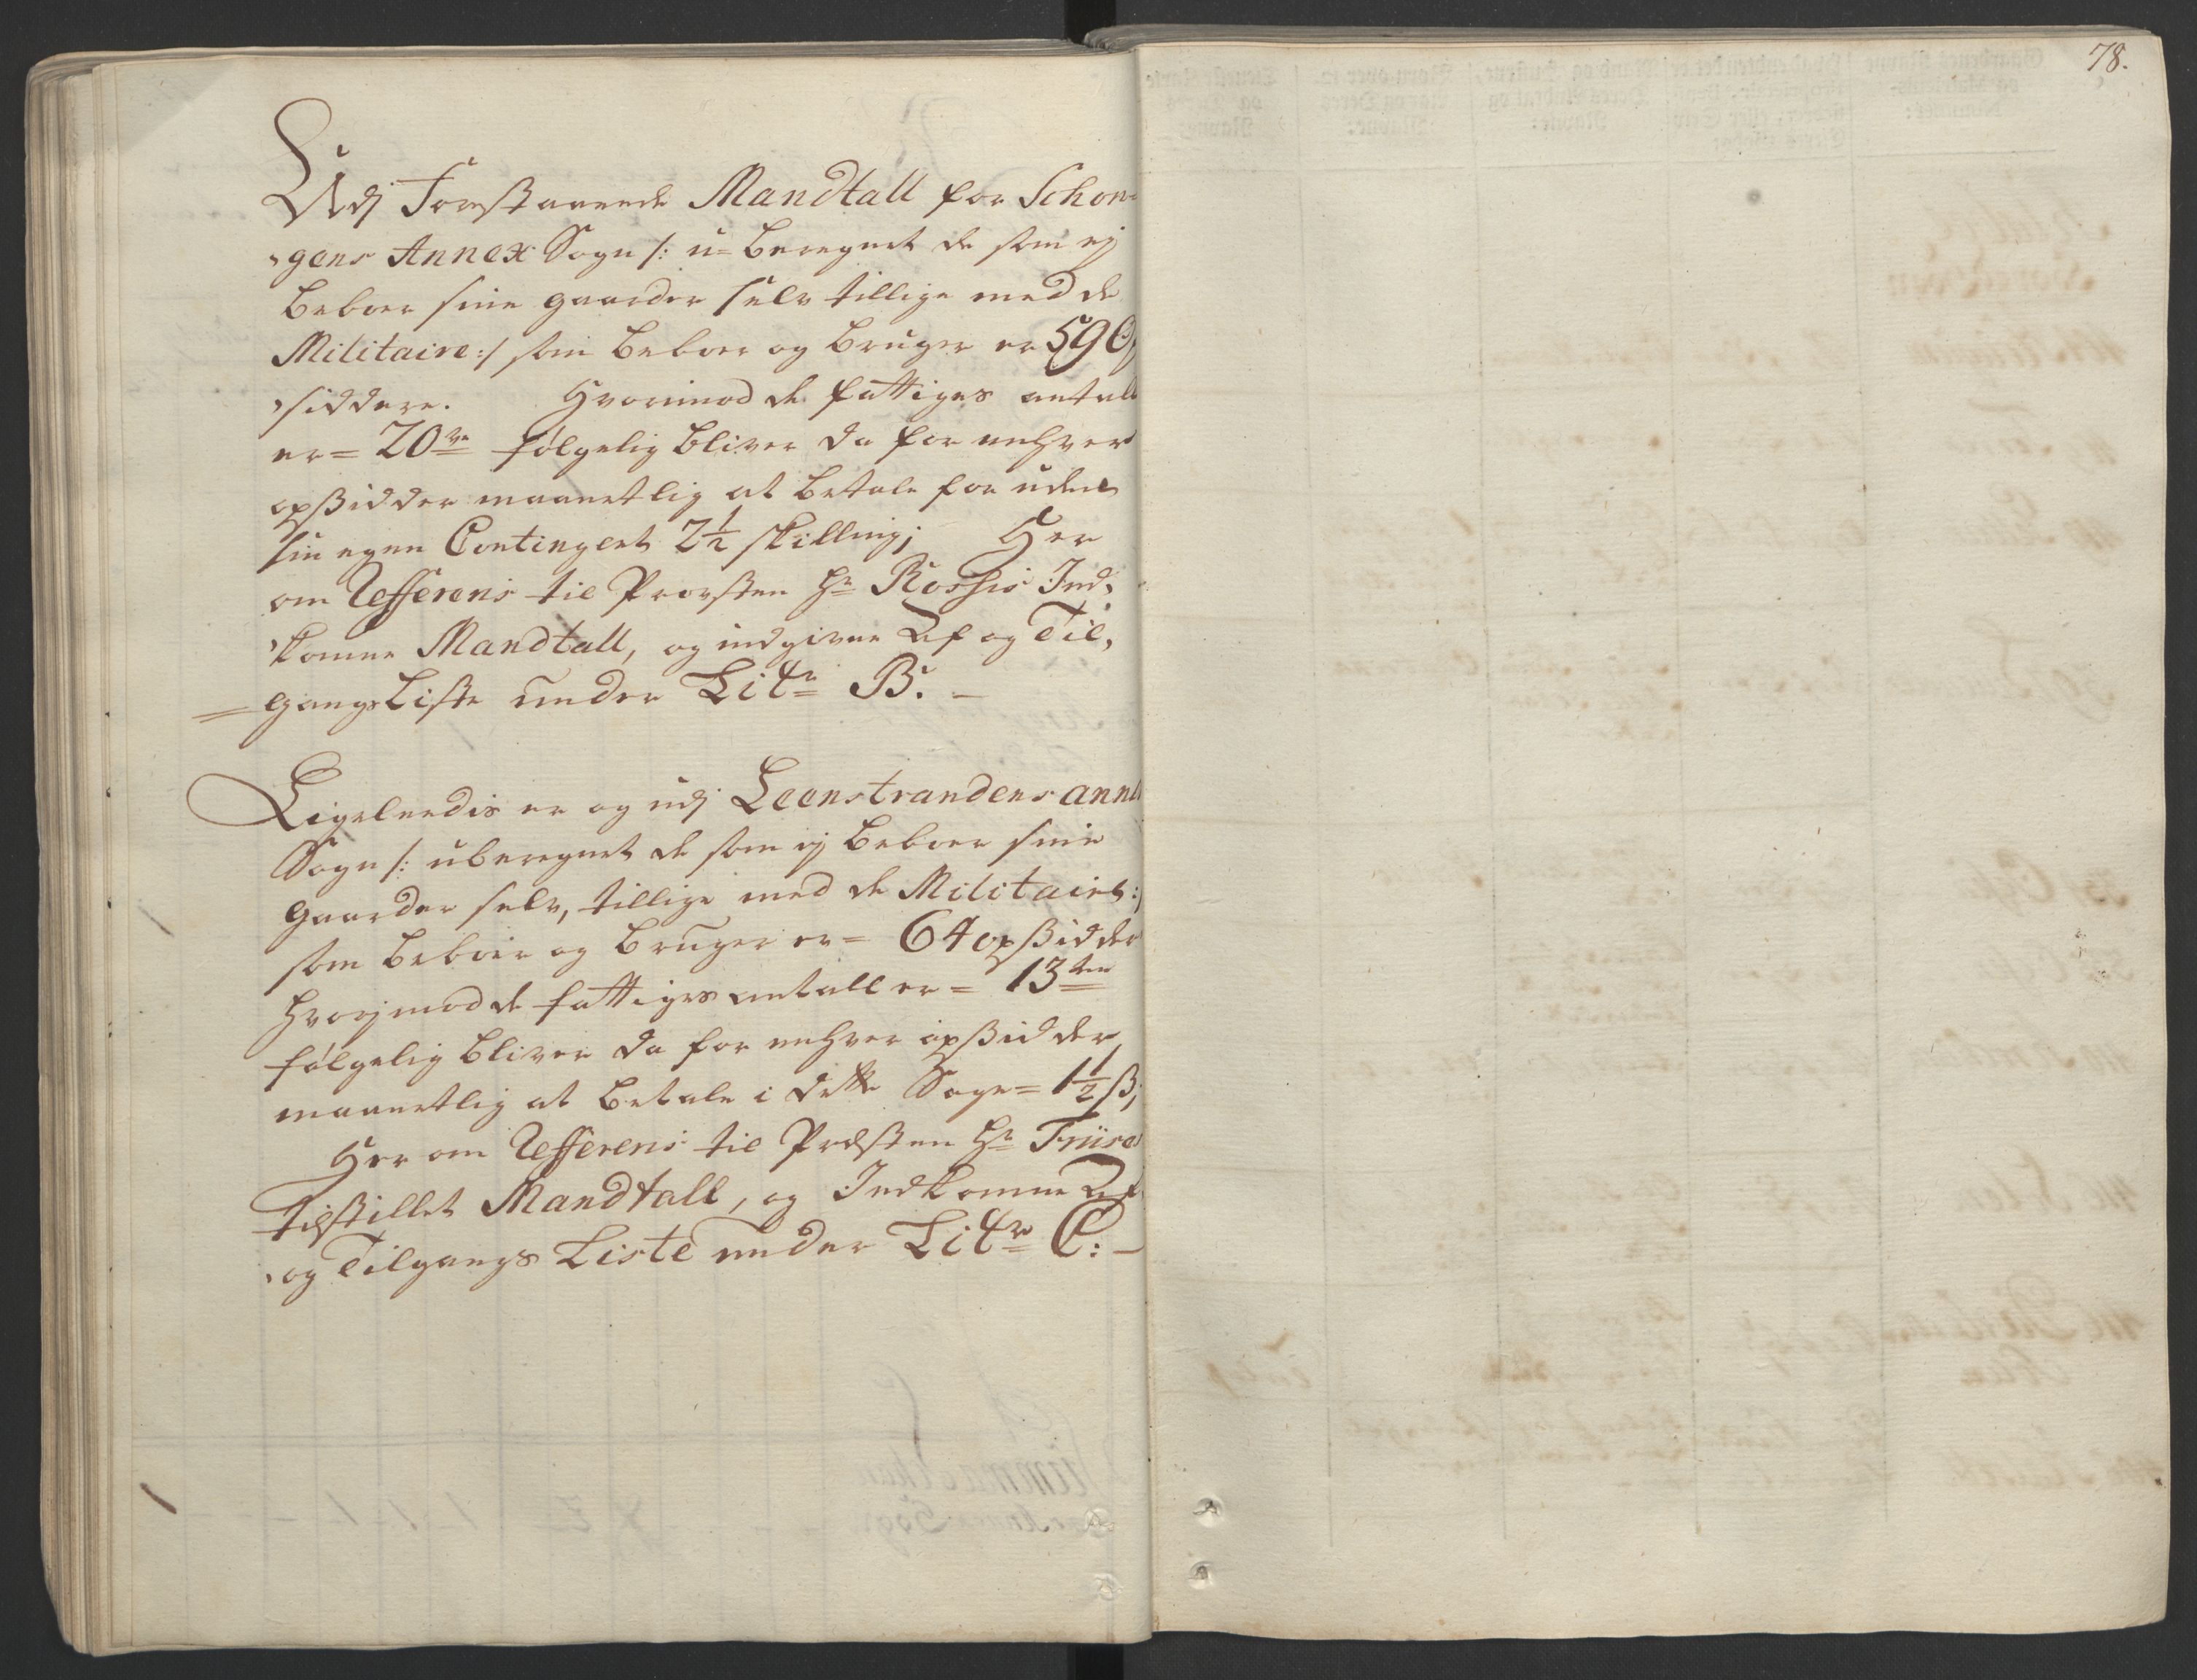 78.
Udj Forestaaende Mandtall for Schon-
gens Annex Sogn /: u-beregnet de som ej
beboer sine gaarder selv tillige med de
Militaire :/ som beboer og bruger er 59 Op
siddere. Hvorimod de fattiges antall
er = 20ve følgelig bliver da for enhver
opsidder maanetlig at betale for uden
sin egen Contingent 2½ skilling; Her
om Refferens til Provsten Hr Rosses Ind-
komne Mandtall, og indgivne Af og Til,
gangs Liste under Litr B. –
Ligeleedis er og udj Leenstrandens annex
Sogn /: uberegnet de som ej beboer sine
gaarder selv, tillige med de Militaire :/
som beboer og bruger er = 64 opsidder
hvorjmod de fattiges antall er = 13ten
følgelig bliver da for enhver opsidder
maanetlig at betale i dette Sogn = 1½ ß;
Her om Refferens til Præsten Hr
tilstillet Mandtall, og Indkomne Af
og Tilgangs Liste under Litr C: –